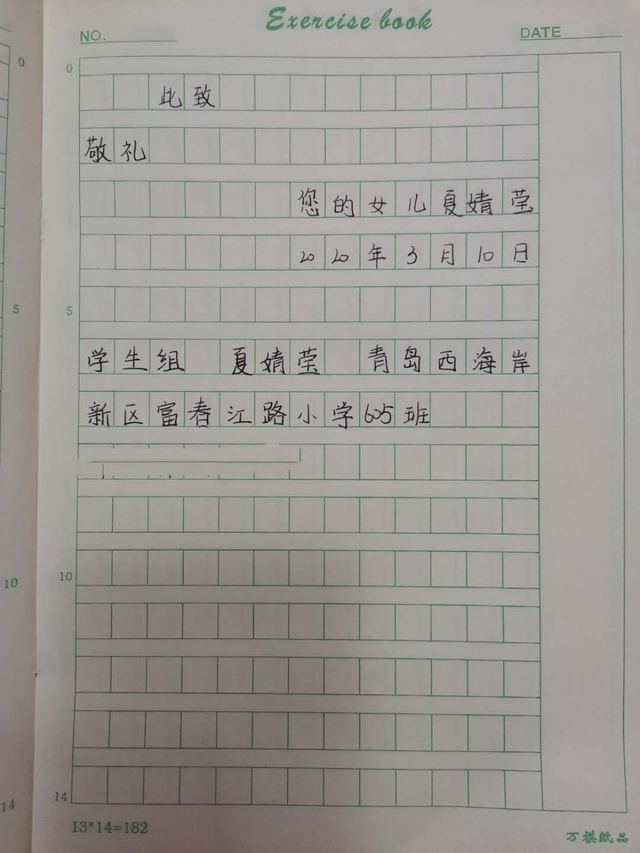 Exercise book
NO.
DATE
0
0
此致
敬礼
您的女儿夏婧莹
2020年3月10日
5
5
学生组 夏婧莹 青岛西海岸
新区富春江路小学605班
10
10
14
14
13*14=182
万祺纸品